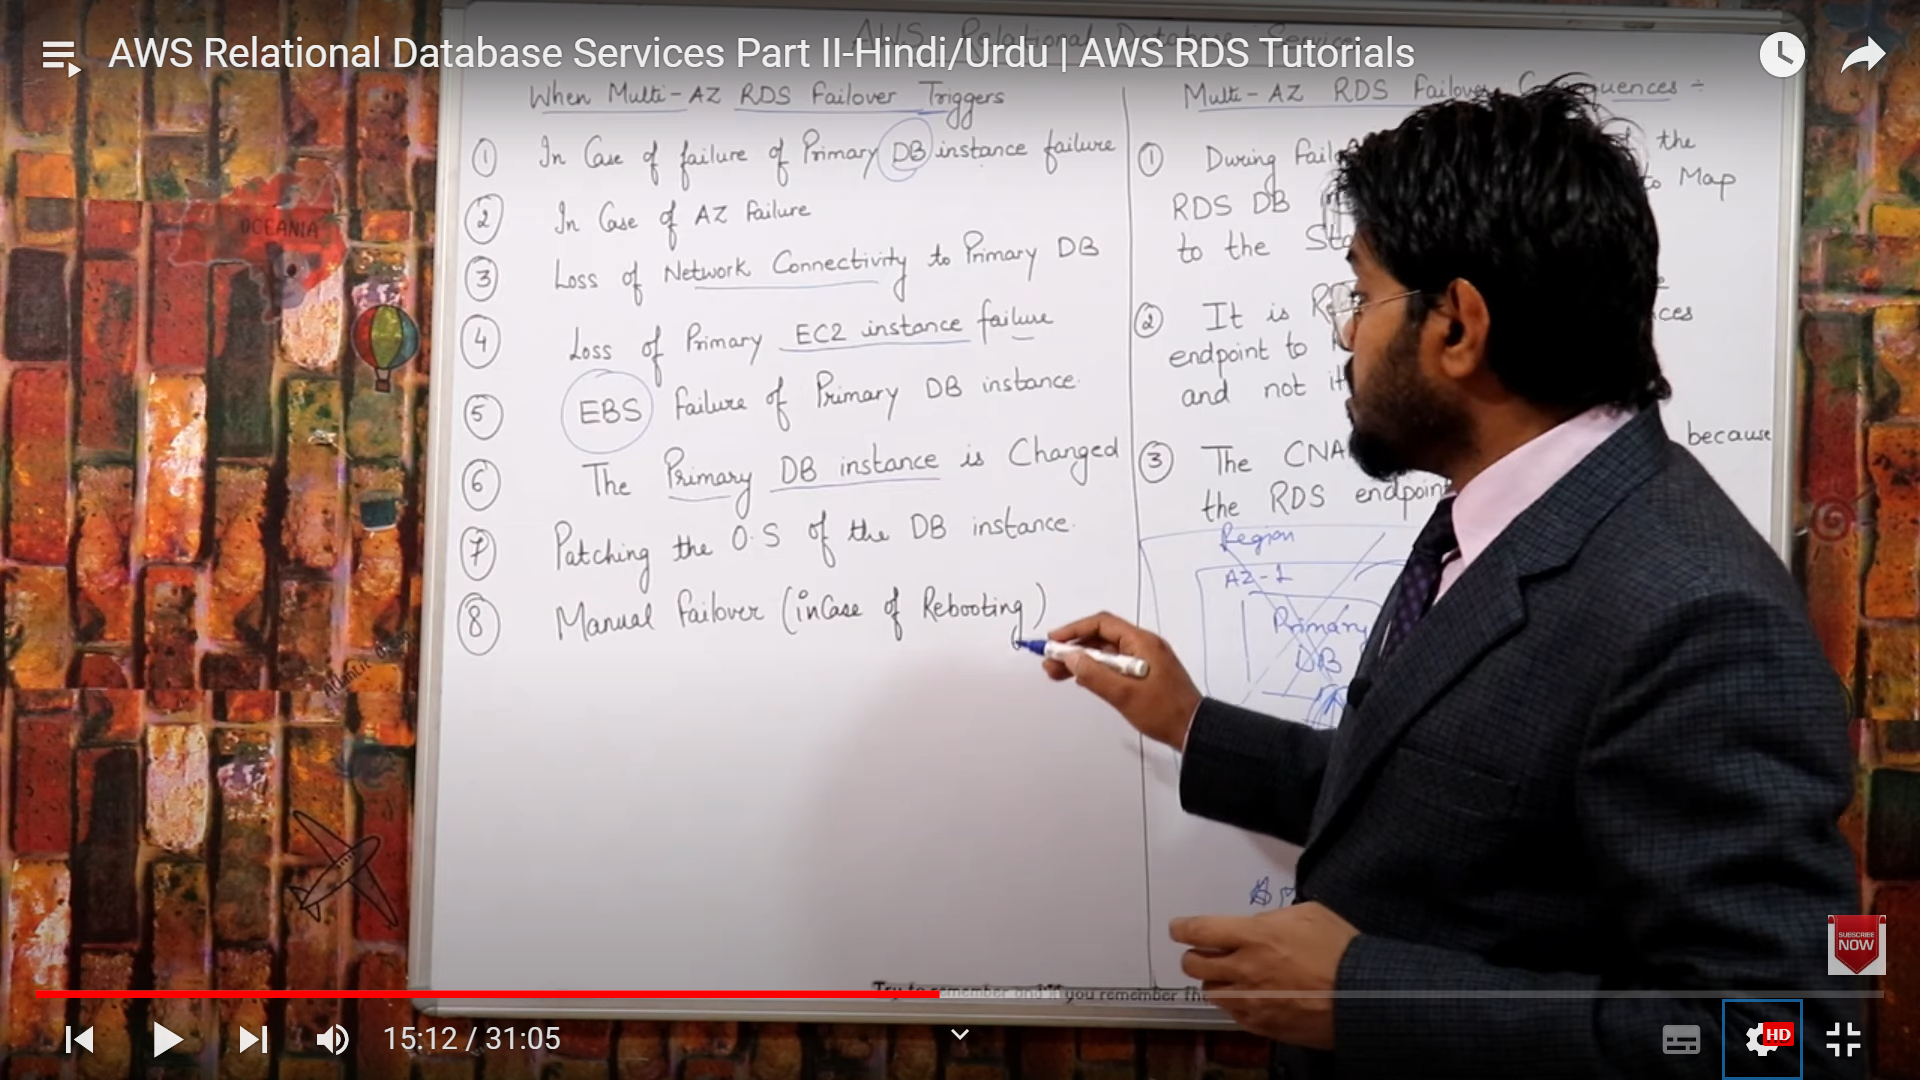 AWS Relational Database Services Part II-Hindi/Urdu | AWS RDS Tutorials
AWS Relational Database Service
When Multi-AZ RDS Failover Triggers
① In Case of failure of Primary DB instance failure
② In Case of AZ Failure
③ Loss of Network Connectivity to Primary DB
④ Loss of Primary EC2 instance failure
⑤ EBS Failure of Primary DB instance.
⑥ The Primary DB instance is Changed
⑦ Patching the O.S of the DB instance.
⑧ Manual Failover (inCase of Rebooting)
Multi-AZ RDS Failover Consequences ÷
① During the
RDS DB to Map
to the
② It is
endpoint to
and not
③ The because
the RDS endpoint
Region
AZ-1
Primary
DB
OCEANIA
Atlantic
Try to remember and if you remember
SUBSCRIBE
NOW
15:12 / 31:05
HD